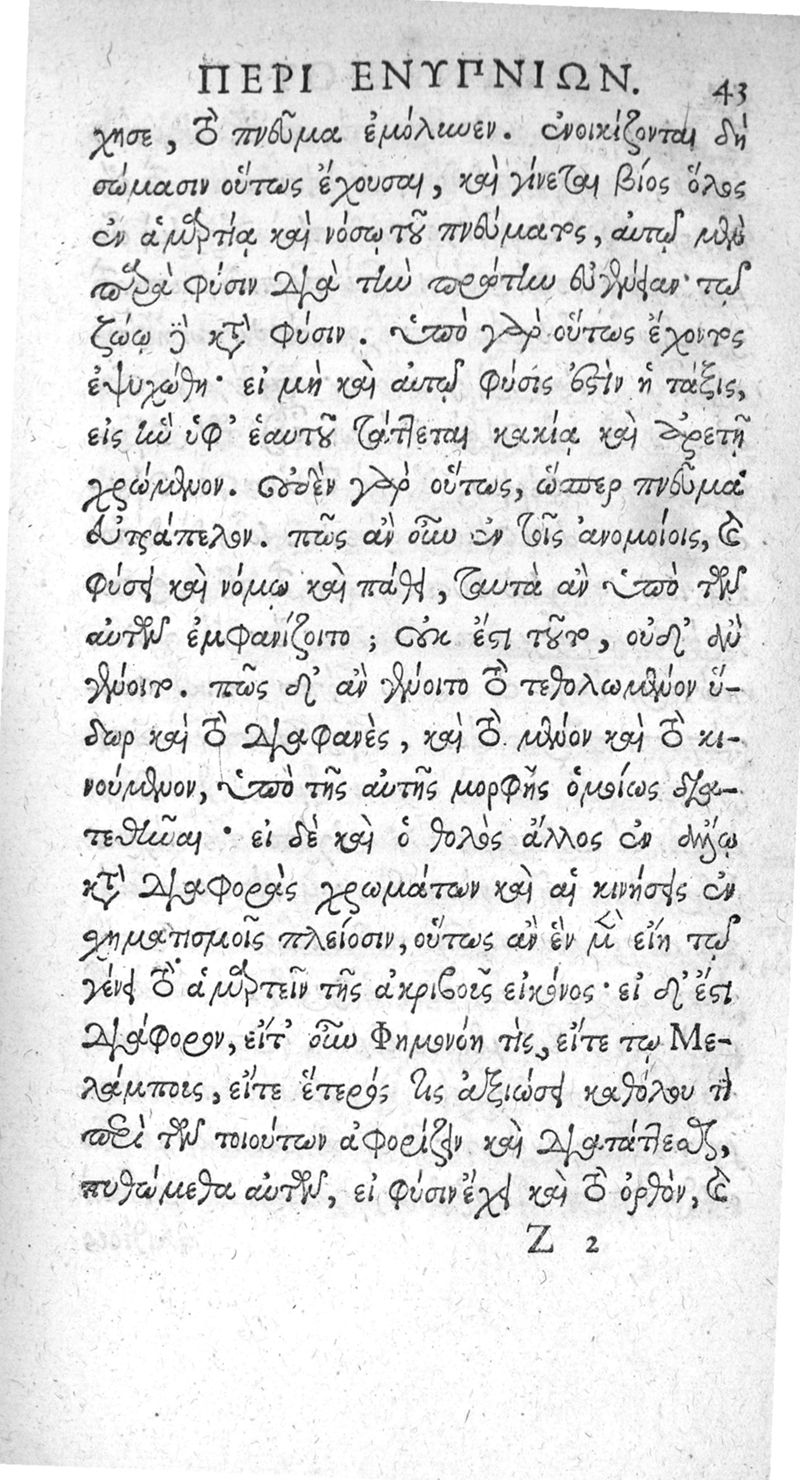 ΠΕΡΙ ΕΝΥΠΝΙΩΝ. 43
χησε, τὸ πνεῦμα ἐμόλυνεν. ἐνοικίζονται δὴ
σώμασιν οὕτως ἔχουσαι, καὶ γίνεται βίος ὅλος
ἐν ἁμαρτίᾳ καὶ νόσῳ τοῦ πνεύματος, αὐτῷ μὲν
παρὰ φύσιν διὰ τὴν πρώτην εὐγένειαν· τῷ
ζώῳ δὲ κατὰ φύσιν. ὑπὸ γὰρ οὕτως ἔχοντος
ἐψυχώθη· εἰ μὴ καὶ αὐτῷ φύσις ἐστὶν ἡ τάξις,
εἰς ἣν ὑφ' ἑαυτοῦ τάττεται κακίᾳ καὶ ἀρετῇ
χρώμενον. οὐδὲν γὰρ οὕτως, ὥσπερ πνεῦμα
εὐτράπελον. πῶς ἂν οὖν ἐν τοῖς ἀνομοίοις, καὶ
φύσει καὶ νόμῳ καὶ πάθει, ταυτὰ ἂν ὑπὸ τῶν
αὐτῶν ἐμφανίζοιτο; οὐκ ἔστι τοῦτο, οὐδ' ἂν
γένοιτο. πῶς δ' ἂν γένοιτο τὸ τεθολωμένον ὕ-
δωρ καὶ τὸ διαφανὲς, καὶ τὸ μένον καὶ τὸ κι-
νούμενον, ὑπὸ τῆς αὐτῆς μορφῆς ὁμοίως δια-
τεθῆναι· εἰ δὲ καὶ ὁ θολὸς ἄλλος ἐν ἄλλῳ
κατὰ διαφορὰς χρωμάτων καὶ αἱ κινήσεις ἐν
σχηματισμοῖς πλείοσιν, οὕτως ἂν ἓν μὲν εἴη τῷ
γένει τὸ ἁμαρτεῖν τῆς ἀκριβοῦς εἰκόνος· εἰ δ' ἔστι
διάφορον, εἴτ' οὖν Φημονόη τὶς, εἴτε τῳ Με-
λάμποις, εἴτε ἕτερός τις ἀξιώσει καθόλου τὶ
περὶ τῶν τοιούτων ἀφορίζειν καὶ διατάττεσθαι,
πυθώμεθα αὐτῶν, εἰ φύσιν ἔχει καὶ τὸ ὀρθὸν, καὶ
Z 2